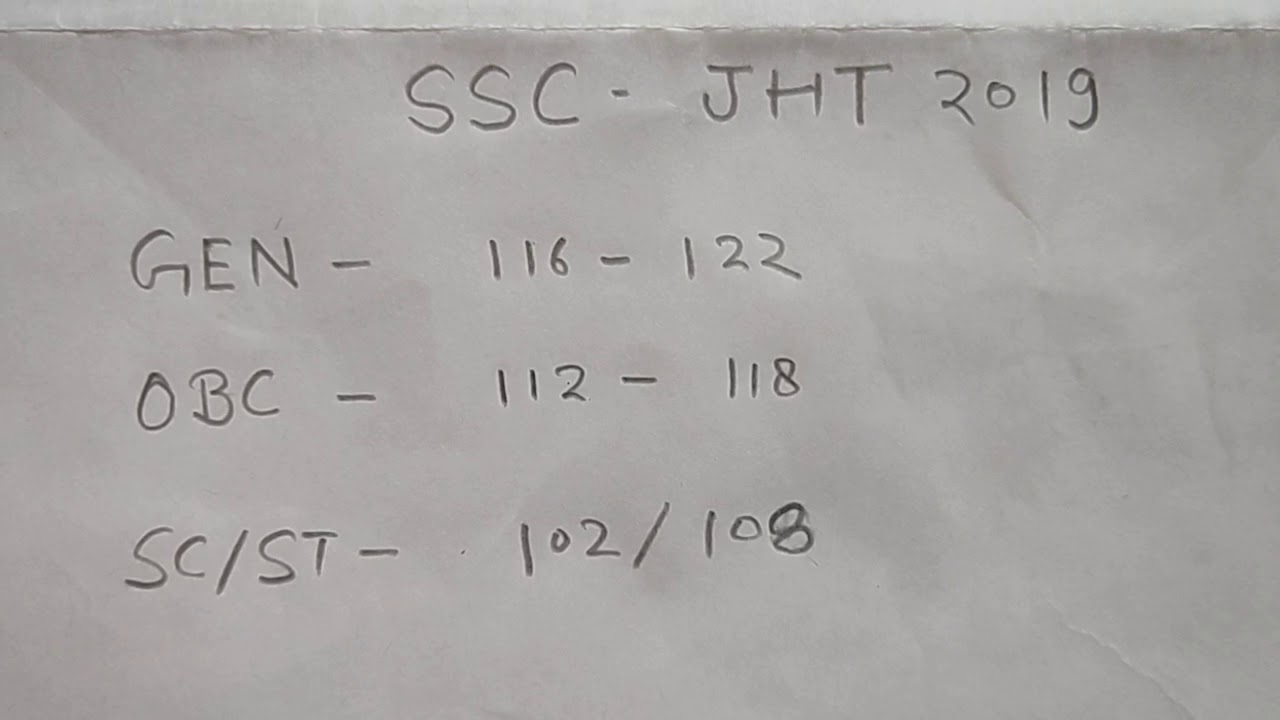 SSC - JHT 2019
GEN - 116 - 122
OBC - 112 - 118
SC/ST - 102 / 108